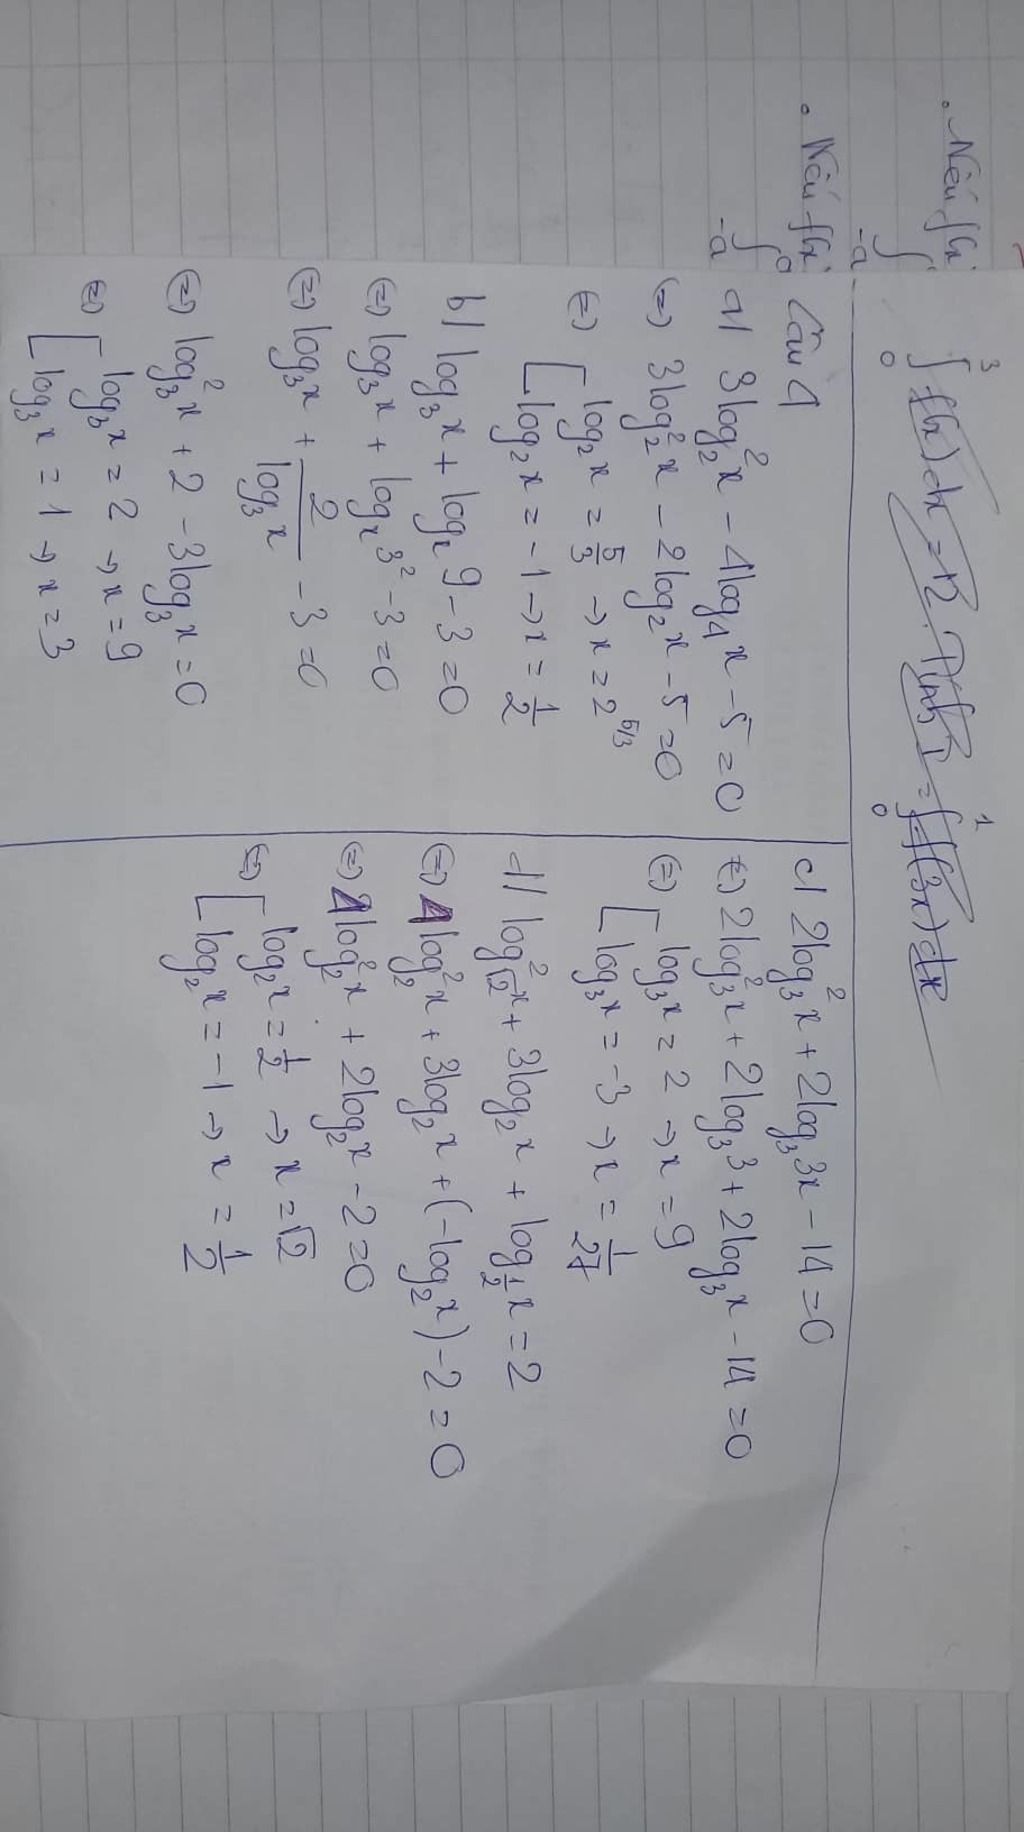 . Nếu f(x)
∫ -a
. Nếu f(x)
∫ -a 0
∫₀³ f(x)dx = 12. Tính I = ∫₀¹ f(3x)dx
Câu 1
a) 3log₂²x - 4log₄x - 5 = 0
(=) 3log₂²x - 2log₂x - 5 = 0
(=) [ log₂x = 5/3 → x = 2^(5/3)
[ log₂x = -1 → x = 1/2
b) log₃x + logₓ9 - 3 = 0
(=) log₃x + logₓ3² - 3 = 0
(=) log₃x + 2/log₃x - 3 = 0
(=) log₃²x + 2 - 3log₃x = 0
(=) [ log₃x = 2 → x = 9
[ log₃x = 1 → x = 3
c) 2log₃²x + 2log₃3x - 14 = 0
(=) 2log₃²x + 2log₃3 + 2log₃x - 14 = 0
(=) [ log₃x = 2 → x = 9
[ log₃x = -3 → x = 1/27
d) log²_√2 x + 3log₂x + log_1/2 x = 2
(=) 4log₂²x + 3log₂x + (-log₂x) - 2 = 0
(=) 4log₂²x + 2log₂x - 2 = 0
(=) [ log₂x = 1/2 → x = √2
[ log₂x = -1 → x = 1/2